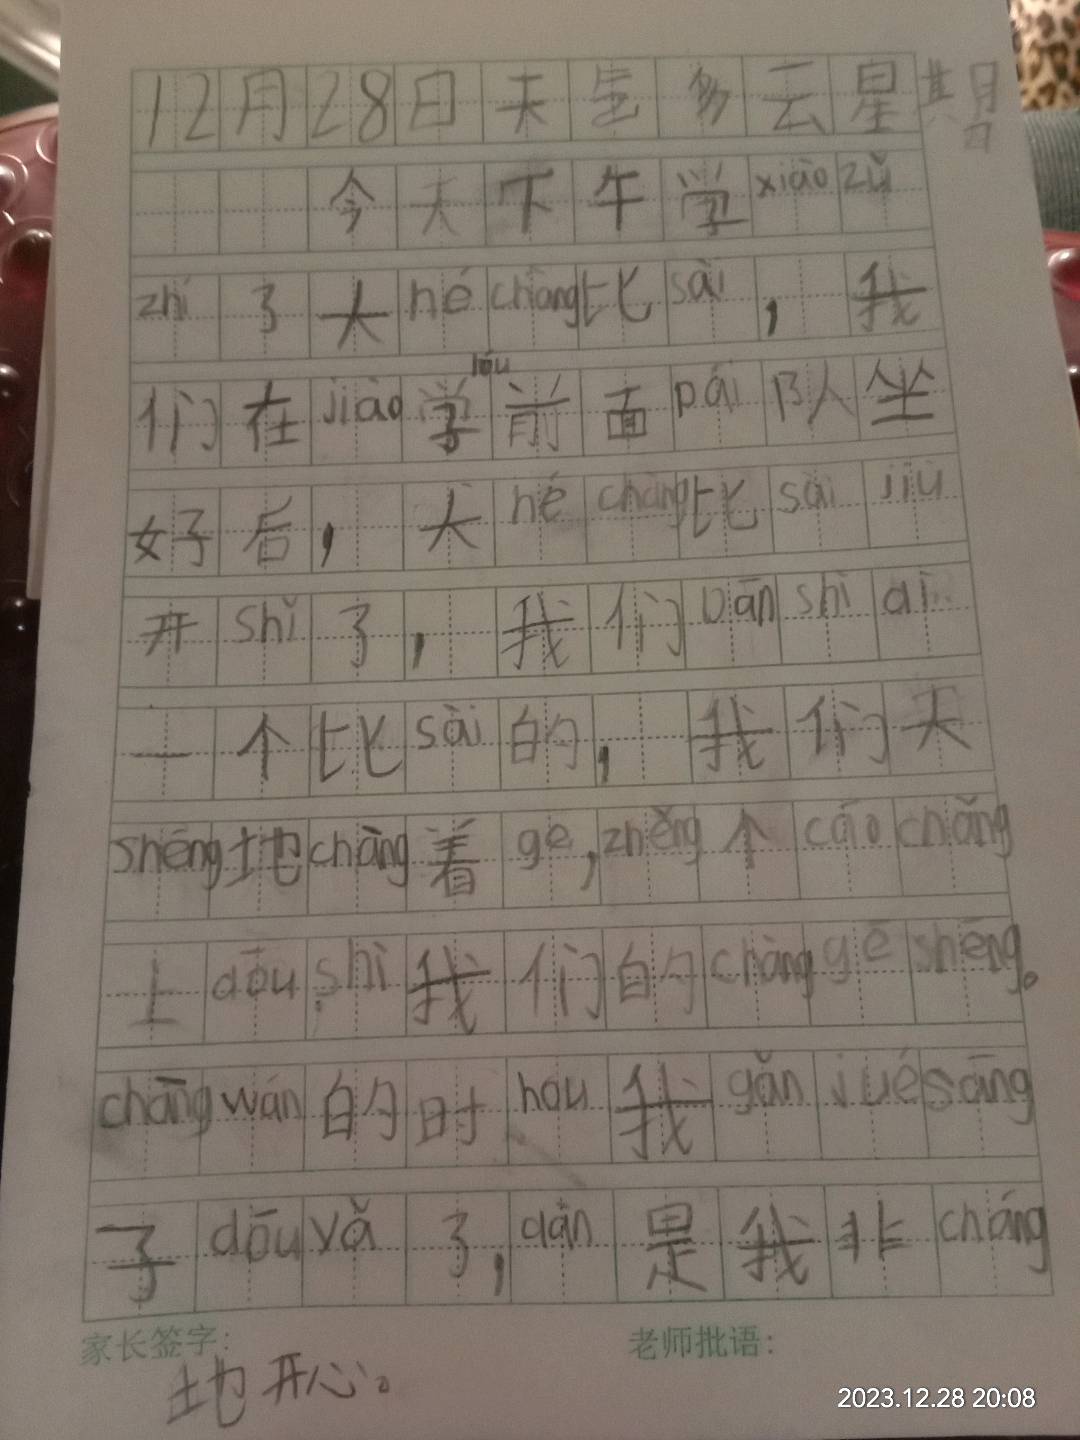 12月28日天气多云星期
今天下午学xiào zǔ
zhī了大hé chàng比sài，我
们在jiào学lóu前面pái队坐
好后，大hé chàng比sài jiù
开shǐ了，我们bān shì dì
一个比sài的，我们大
shēng地chàng着gē，zhěng个cāo chǎng
上dōu shì我们的chàng gē shēng。
chàng wán的时hou我gǎn jué sǎng
子dōu yǎ了，dàn是我非cháng
家长签字：
老师批语：
地开心。
2023.12.28 20:08